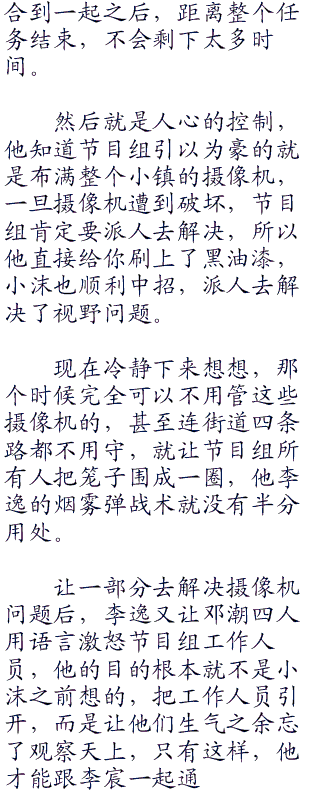 合到一起之后，距离整个任
务结束，不会剩下太多时
间。
然后就是人心的控制，
他知道节目组引以为豪的就
是布满整个小镇的摄像机，
一旦摄像机遭到破坏，节目
组肯定要派人去解决，所以
他直接给你刷上了黑油漆，
小沫也顺利中招，派人去解
决了视野问题。
现在冷静下来想想，那
个时候完全可以不用管这些
摄像机的，甚至连街道四条
路都不用守，就让节目组所
有人把笼子围成一圈，他李
逸的烟雾弹战术就没有半分
用处。
让一部分去解决摄像机
问题后，李逸又让邓潮四人
用语言激怒节目组工作人
员，他的目的根本就不是小
沫之前想的，把工作人员引
开，而是让他们生气之余忘
了观察天上，只有这样，他
才能跟李宸一起通